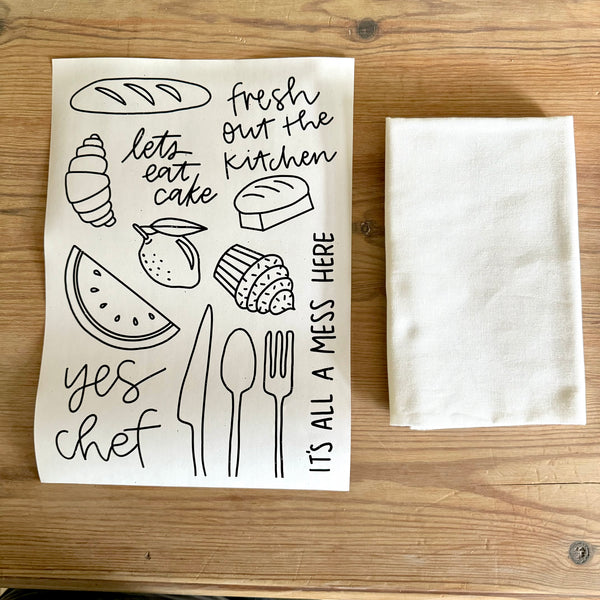 fresh
out the
kitchen
lets
eat
cake
IT'S ALL A MESS HERE
yes
chef